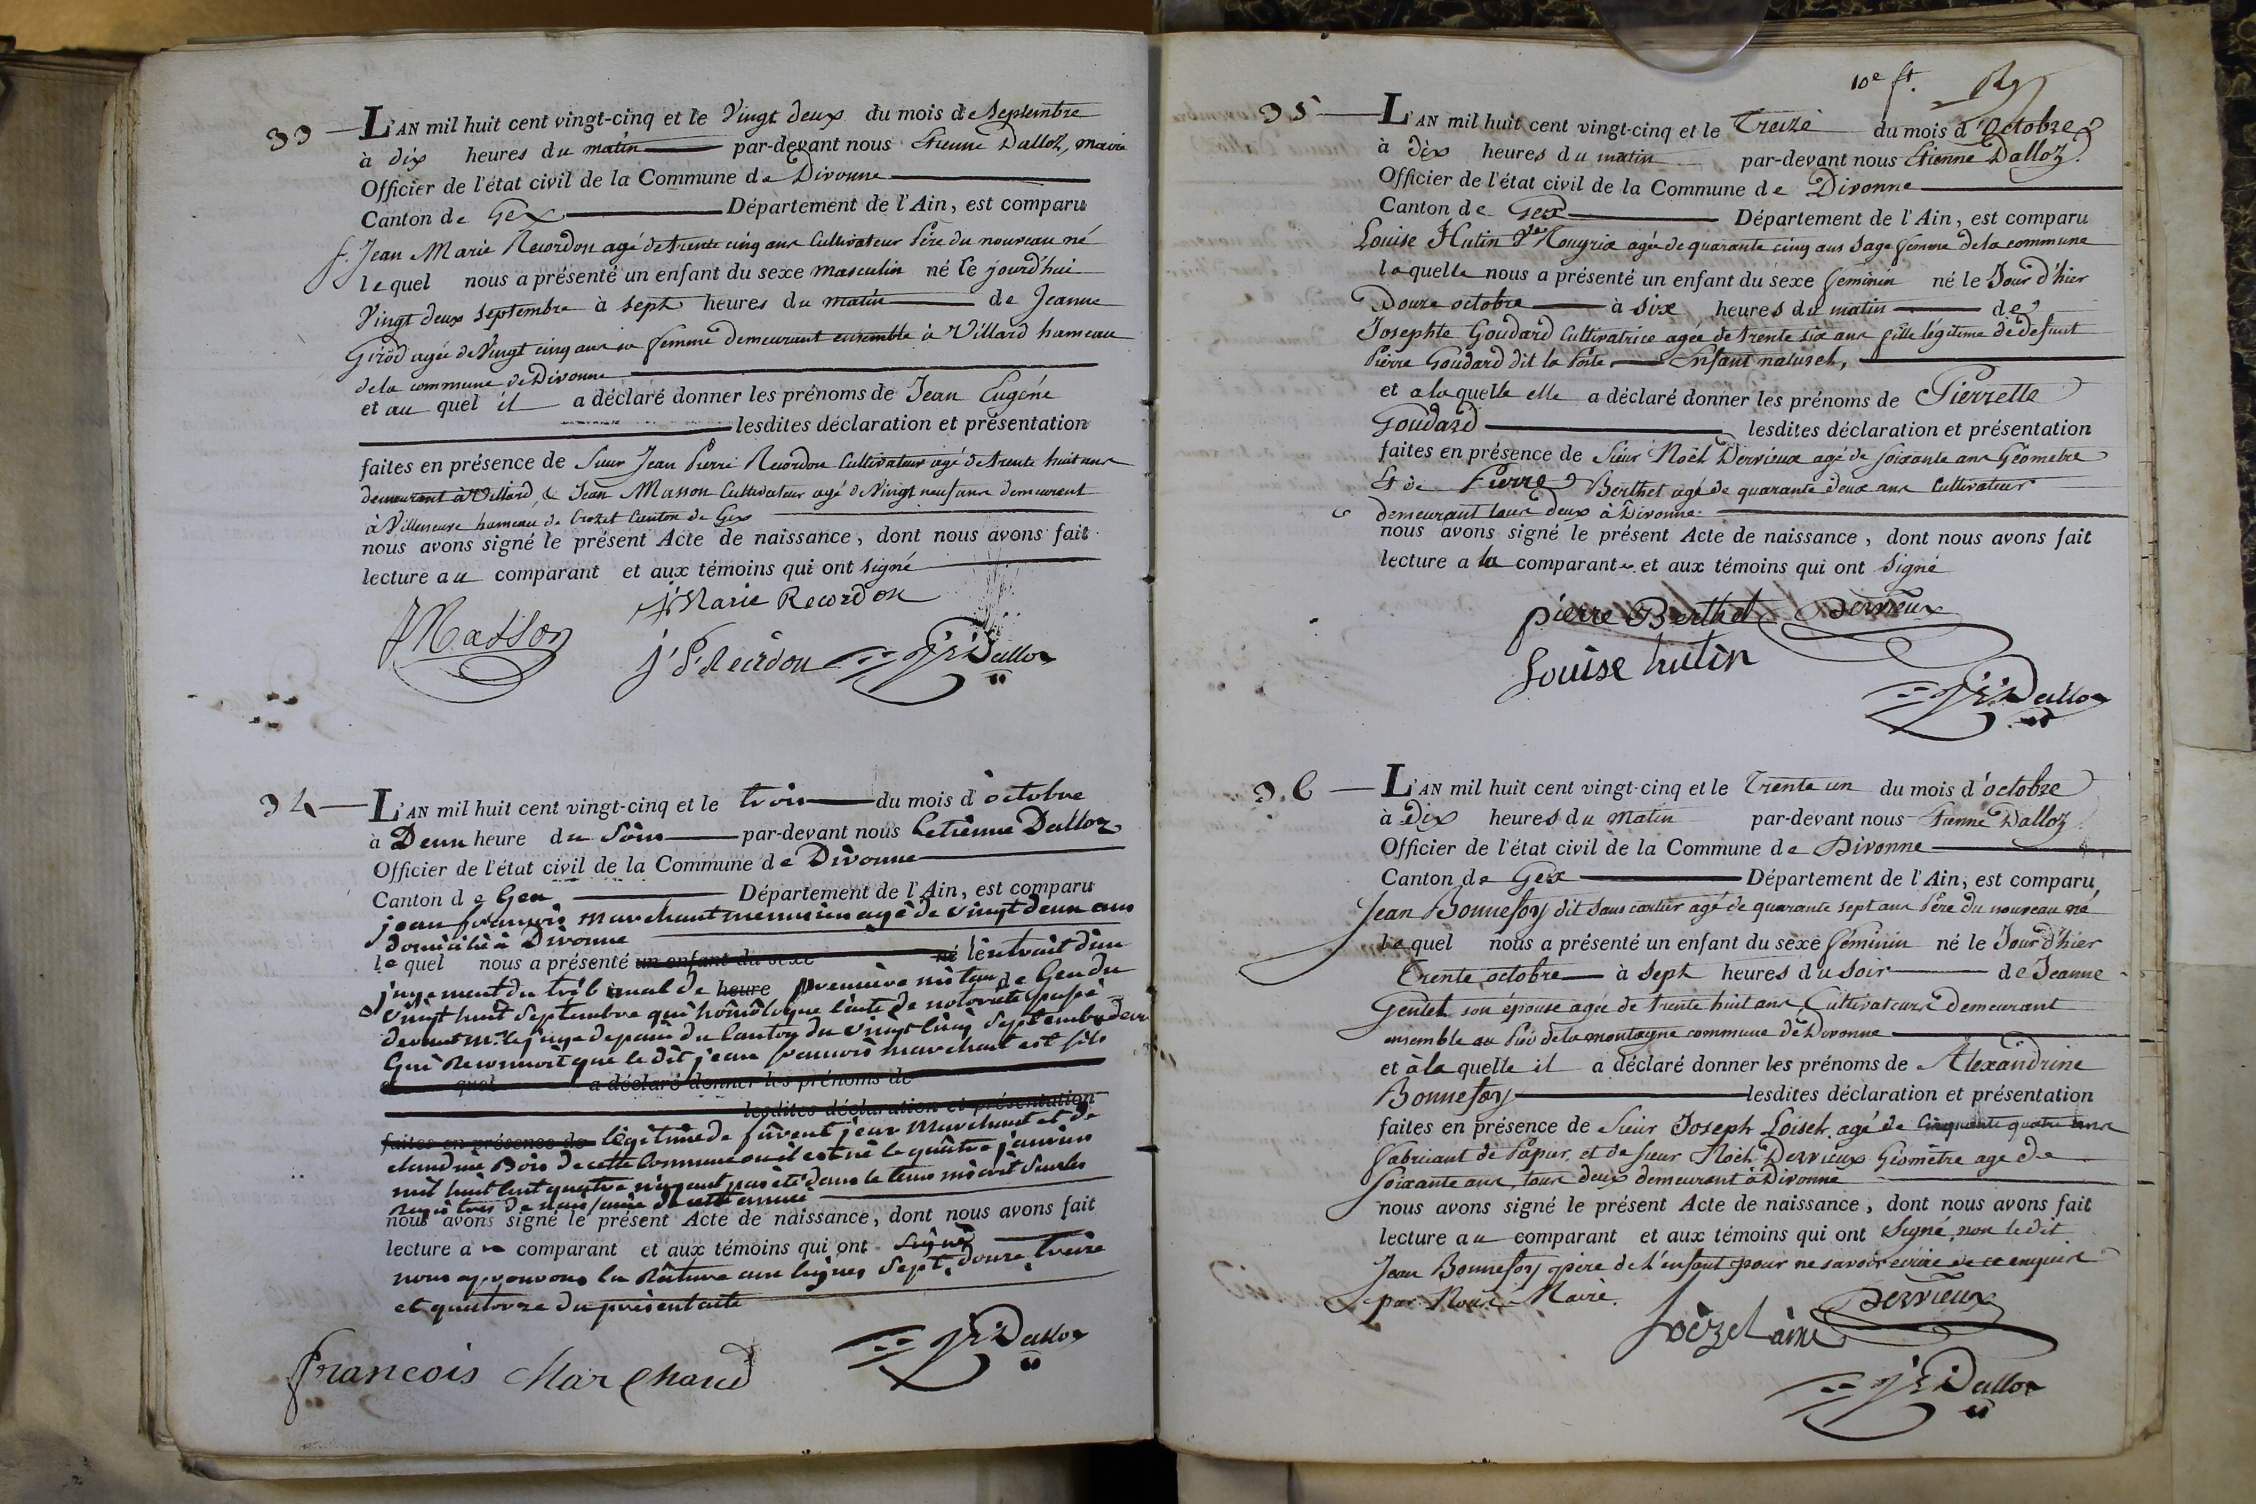 33 — L'AN mil huit cent vingt-cinq et le Vingt deux du mois de Septembre
à dix heures du matin par-devant nous Etienne Dalloz, maire
Officier de l'état civil de la Commune de Divonne
Canton de Gex Département de l'Ain, est comparu
Jean Marie Recordon agé de trente cinq ans Cultivateur Père du nouveau né
lequel nous a présenté un enfant du sexe masculin né le jourd'hui
Vingt deux septembre à sept heures du matin de Jeanne
Girod agée de Vingt cinq ans sa femme demeurant ensemble à Villard hameau
de la commune de Divonne
et au quel il a déclaré donner les prénoms de Jean Eugéne
lesdites déclaration et présentation
faites en présence de Sieur Jean Pierre Recordon Cultivateur agé de trente huit ans
demeurant à Villard, & Jean Masson Cultivateur agé de Vingt neuf ans demeurent
à Villeneuve hameau de Crozet Canton de Gex
nous avons signé le présent Acte de naissance, dont nous avons fait
lecture au comparant et aux témoins qui ont signé
J. Marie Recordon
JMasson
J. P. Recordon Dalloz
34 — L'AN mil huit cent vingt-cinq et le trois du mois d'octobre
à Deux heure du Soir par-devant nous Etienne Dalloz
Officier de l'état civil de la Commune de Divonne
Canton de Gex Département de l'Ain, est comparu
jean francois Marchant menuisier agé de vingt deux ans
domicilié à Divonne
lequel nous a présenté un enfant du sexe né l'extrait d'un
jugement du tribunal de heure première instance de Gex du
vingt huit Septembre qui homologue l'acte de notoriété passé
devant Mr. le juge de paix du Canton du vingt cinq Septembre dern
Qui Reconnoit que le dit jean francois marchant est fils
quel a déclaré donner les prénoms de
lesdites déclaration et présentation
faites en présence de légitime de fûrent jean Marchant et de
claudine Bois de cette Commune ou il est né le quatre janvier
mil huit Cent quatre n'ayant pas été dans le tems inscrit Sur les
Registres de naissance de cette année
nous avons signé le présent Acte de naissance, dont nous avons fait
lecture au comparant et aux témoins qui ont signé
nous approuvons la Râture aux lignes Sept, douze, treize
et quatorze du présent acte
Dalloz
francois Marchand
10e ft.
35 — L'AN mil huit cent vingt-cinq et le Treize du mois d'Octobre
à Dix heures du matin par-devant nous Etienne Dalloz
Officier de l'état civil de la Commune de Divonne
Canton de Gex Département de l'Ain, est comparu
Louise Hutin Ve Rougria agée de quarante cinq ans Sage femme de la commune
laquelle nous a présenté un enfant du sexe féminin né le Jour d'hier
Douze octobre à six heures du matin de
Josephte Goudard Cultivatrice agée de trente six ans fille légitime de défunt
Pierre Goudard dit la Porte. Enfant naturel,
et a laquelle elle a déclaré donner les prénoms de Pierrette
Goudard lesdites déclaration et présentation
faites en présence de Sieur Noël Dervieux agé de soixante ans Géometre
Et de Pierre Berthet agé de quarante deux ans Cultivateur
demeurant tous deux à Divonne.
nous avons signé le présent Acte de naissance, dont nous avons fait
lecture a la comparante et aux témoins qui ont Signé
pierre Berthet Dervieux
Louise hutin
Dalloz
36 — L'AN mil huit cent vingt-cinq et le Trente un du mois d'octobre
à Dix heures du Matin par-devant nous Etienne Dalloz
Officier de l'état civil de la Commune de Divonne
Canton de Gex Département de l'Ain, est comparu
Jean Bonnefoy dit Sans cartier agé de quarante sept ans Père du nouveau né
lequel nous a présenté un enfant du sexe féminin né le Jour d'hier
Trente octobre à sept heures du soir de Jeanne
Gentet son épouse agée de trente huit ans, Cultivateurs demeurant
ensemble au Pié de la montagne commune de Divonne
et à la quelle il a déclaré donner les prénoms de Alexandrine
Bonnefoy lesdites déclaration et présentation
faites en présence de Sieur Joseph Loiseh. agé de Cinquante quatre ans
Fabricant de Papier, et de Sieur Noël Dervieux Géomètre agé de
Soixante ans, tous deux demeurent à Divonne
nous avons signé le présent Acte de naissance, dont nous avons fait
lecture au comparant et aux témoins qui ont Signé, non le dit
Jean Bonnefoy père de l'enfant pour ne savoir ecrire de ce enquis
par Nous Maire.
Dervieux
Loizet ainé
Dalloz